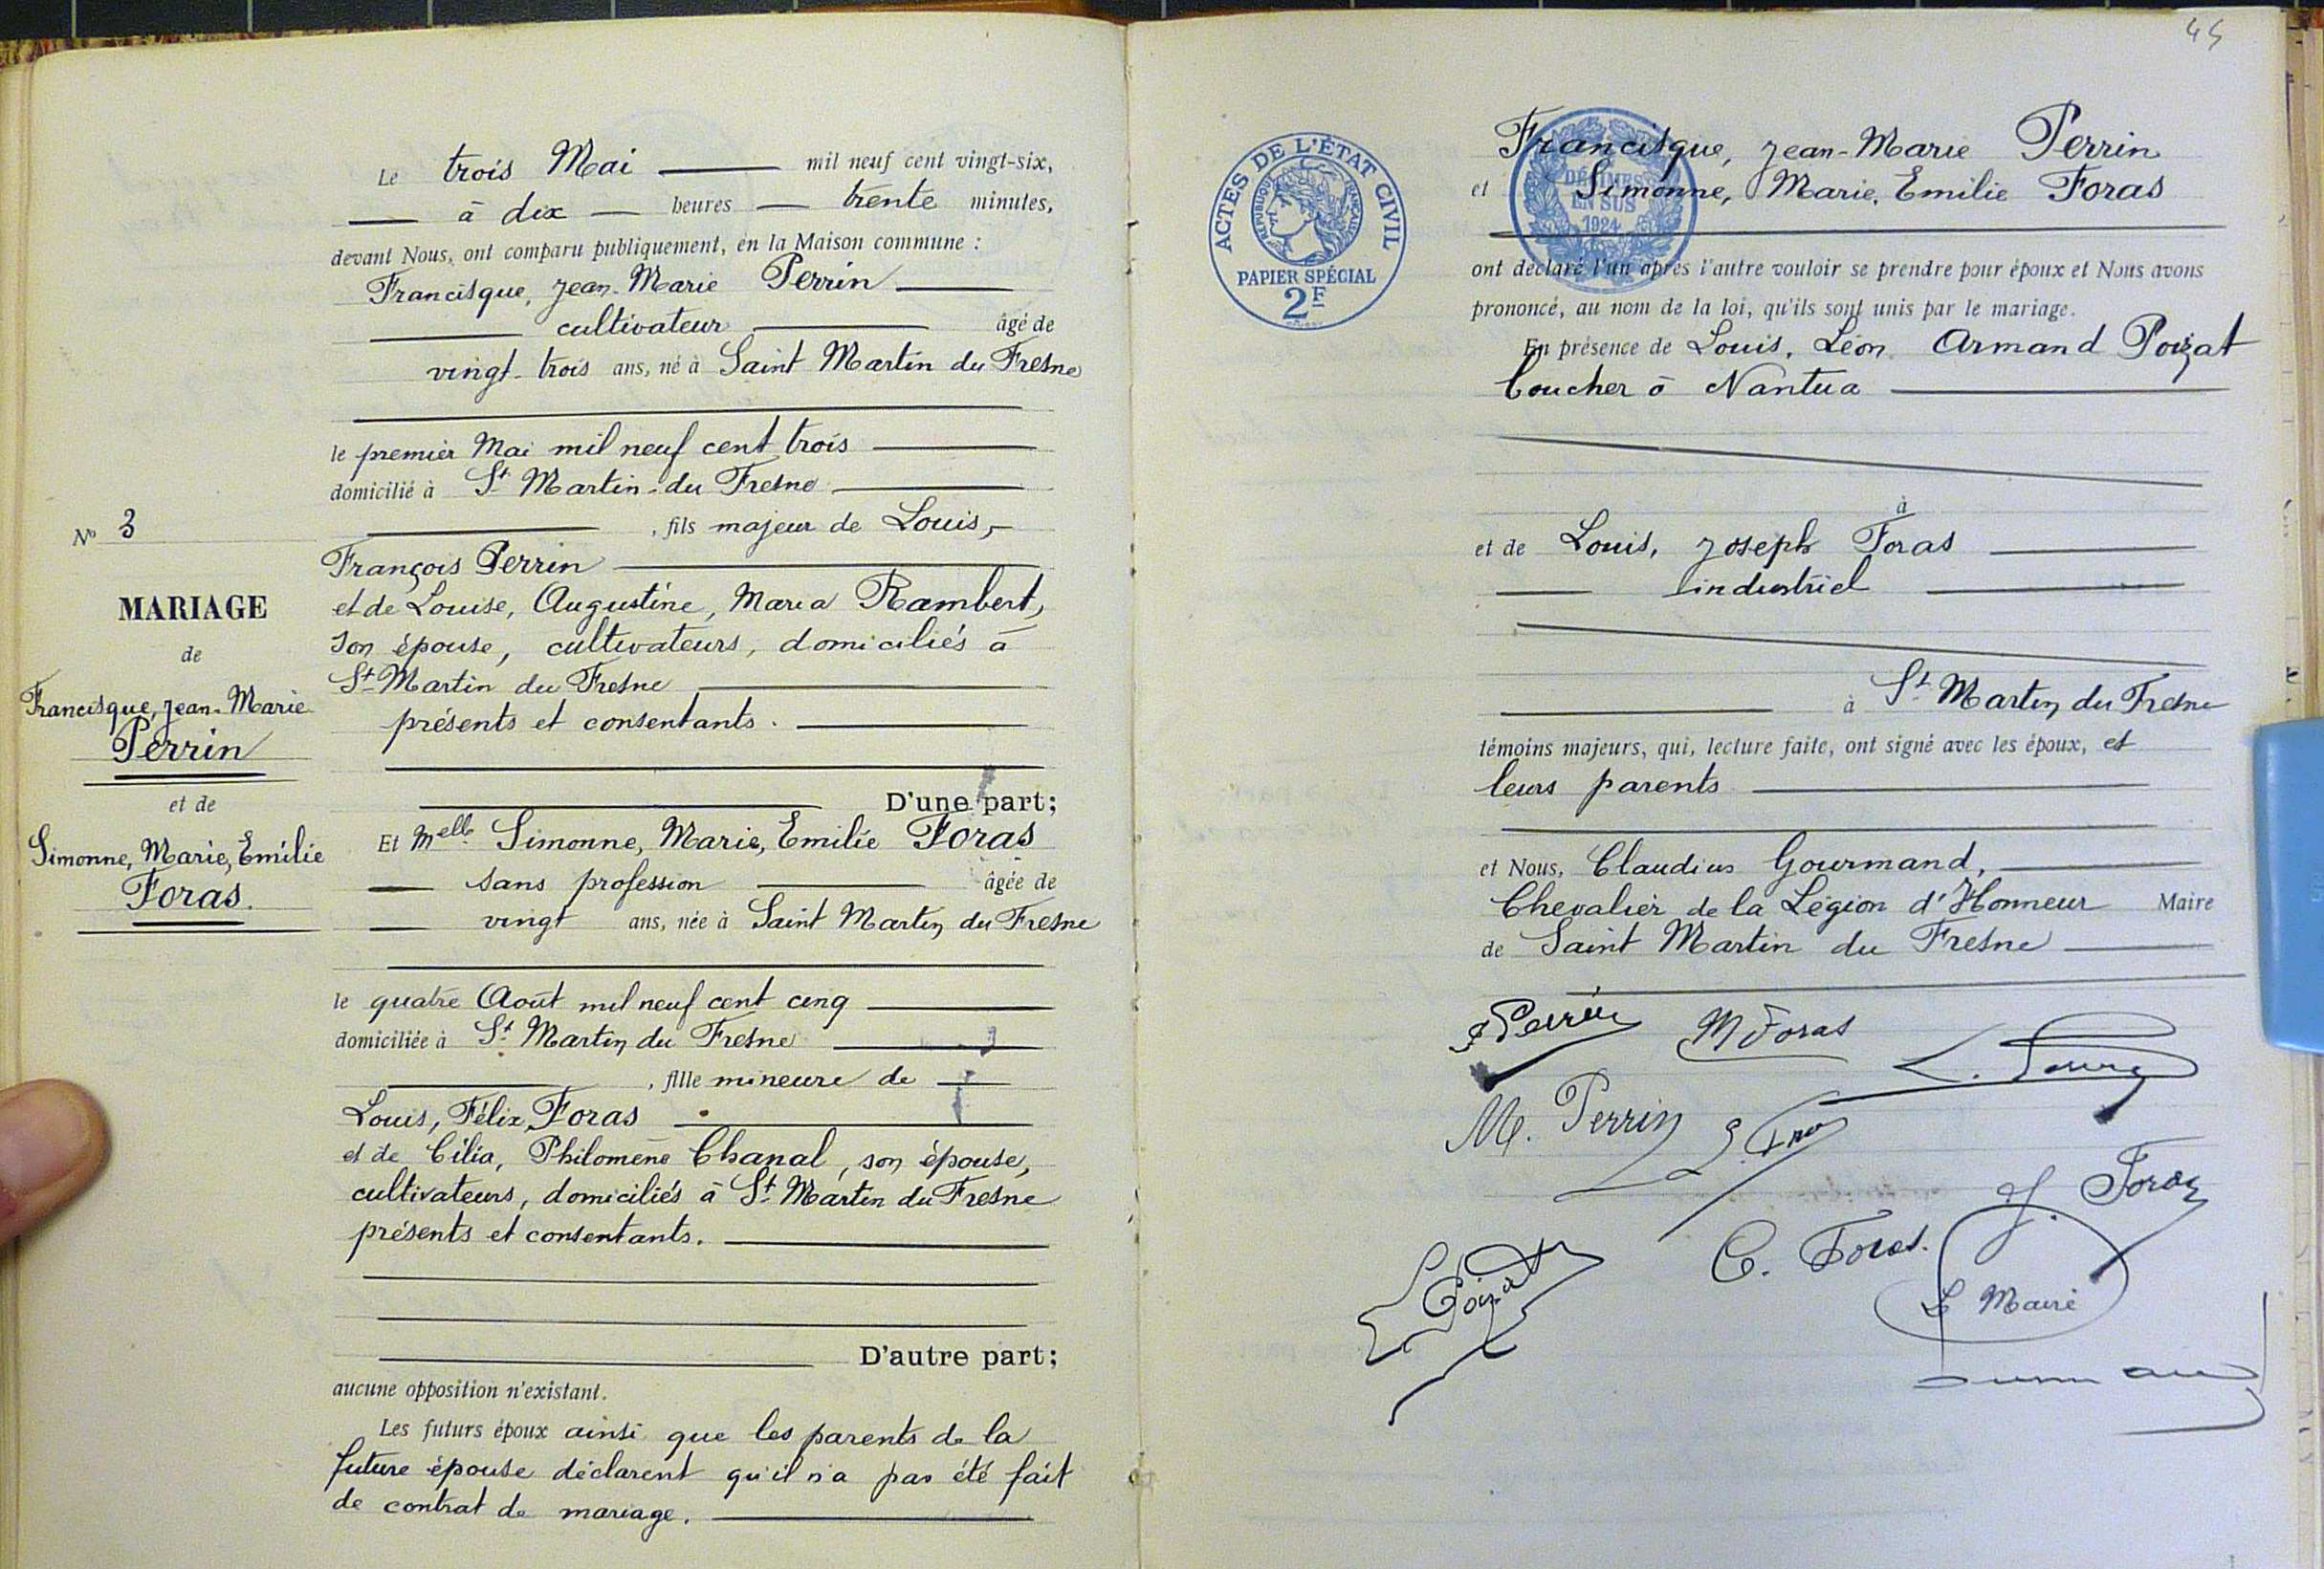 Le trois Mai mil neuf cent vingt-six,
à dix heures trente minutes,
devant Nous, ont comparu publiquement, en la Maison commune :
Francisque, Jean-Marie Perrin
cultivateur âgé de
vingt-trois ans, né à Saint Martin du Fresne
le premier Mai mil neuf cent trois
domicilié à St Martin-du Fresne
, fils majeur de Louis,
François Perrin
et de Louise, Augustine, Maria Rambert,
son épouse, cultivateurs, domiciliés à
St Martin du Fresne
présents et consentants.
D'une part;
Et Melle Simonne, Marie, Emilie Foras
sans profession âgée de
vingt ans, née à Saint Martin du Fresne
le quatre Août mil neuf cent cinq
domiciliée à St Martin du Fresne
, fille mineure de
Louis, Félix, Foras
et de Célia, Philomène Chanal, son épouse,
cultivateurs, domiciliés à St Martin du Fresne
présents et consentants.
D'autre part;
aucune opposition n'existant.
Les futurs époux ainsi que les parents de la
future épouse déclarent qu'il n'a pas été fait
de contrat de mariage.
No 3
MARIAGE
de
Francisque, Jean-Marie
Perrin
et de
Simonne, Marie, Emilie
Foras.
45
ACTES DE L'ÉTAT CIVIL
RÉPUBLIQUE FRANÇAISE
PAPIER SPÉCIAL
2F
DÉCIMES
EN SUS
1924
Francisque, Jean-Marie Perrin
et Simonne, Marie, Emilie Foras
ont déclaré l'un après l'autre vouloir se prendre pour époux et Nous avons
prononcé, au nom de la loi, qu'ils sont unis par le mariage.
En présence de Louis, Léon Armand Poizat
boucher à Nantua
à
et de Louis, Joseph Foras
industriel
à St Martin du Fresne
témoins majeurs, qui, lecture faite, ont signé avec les époux, et
leurs parents
et Nous, Claudius Gourmand,
Chevalier de la Légion d'Honneur Maire
de Saint Martin du Fresne
F Perrin M Foras
M. Perrin
J. Foras
C. Foras.
Poizat
Le Maire